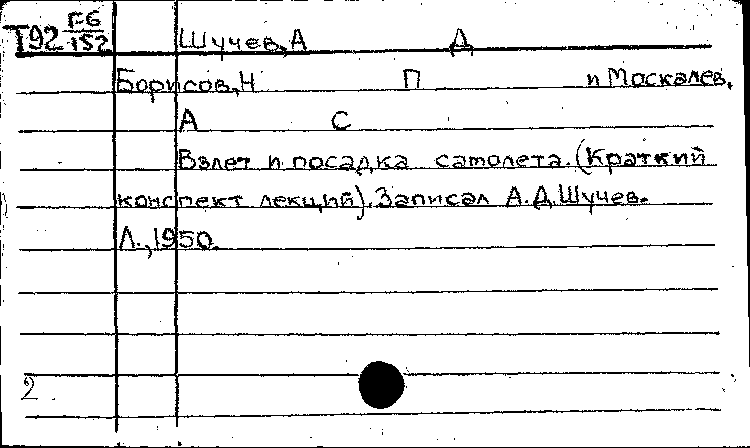 Т92 Г6/152 Шучев, А Д
Борисов, Н П и Москалев,
А С
Взлет и посадка самолета. (Краткий
конспект лекций). Записал А.Д.Шучев.
Л., 1950.
2